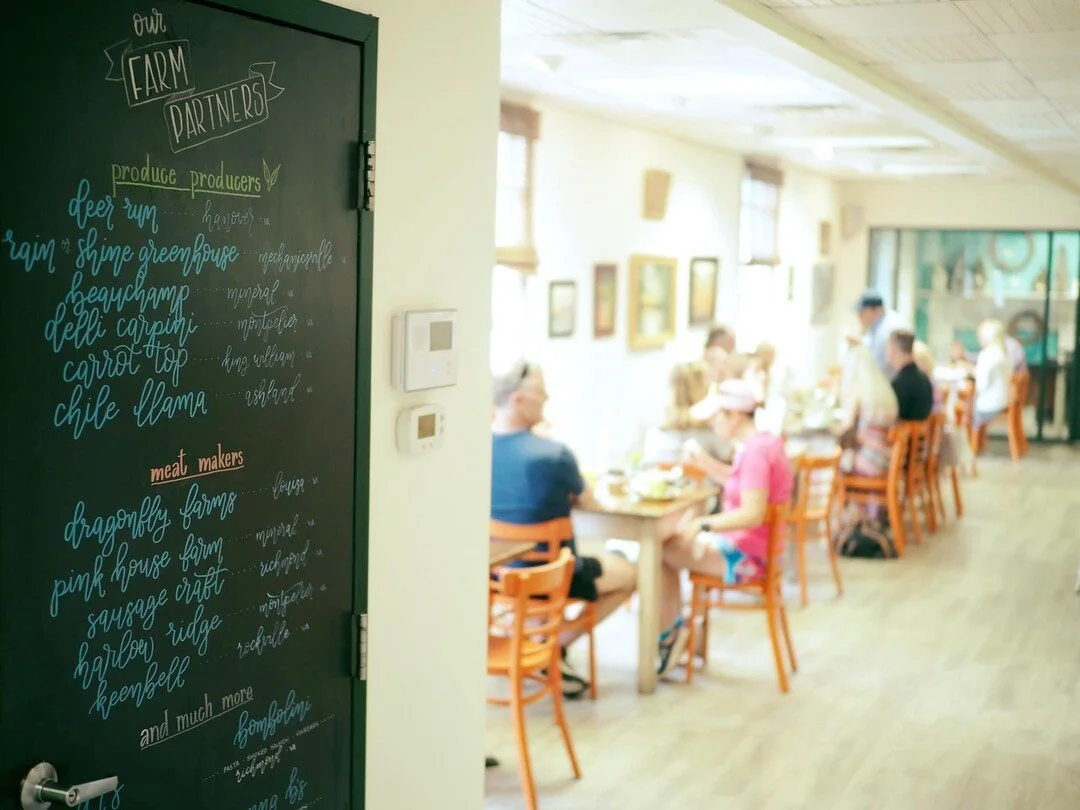 our
FARM
PARTNERS
produce producers
deer run hanover VA
rain or shine greenhouse mechanicsville VA
beauchamp mineral VA
delli carpini montpelier VA
carrot top king william VA
chile llama ashland VA
meat makers
dragonfly farms louisa VA
pink house farm mineral VA
sausage craft richmond VA
harlow ridge montpelier VA
keenbell rockville VA
and much more
bombolini
PASTA SMOKED SALMON
richmond VA
b's